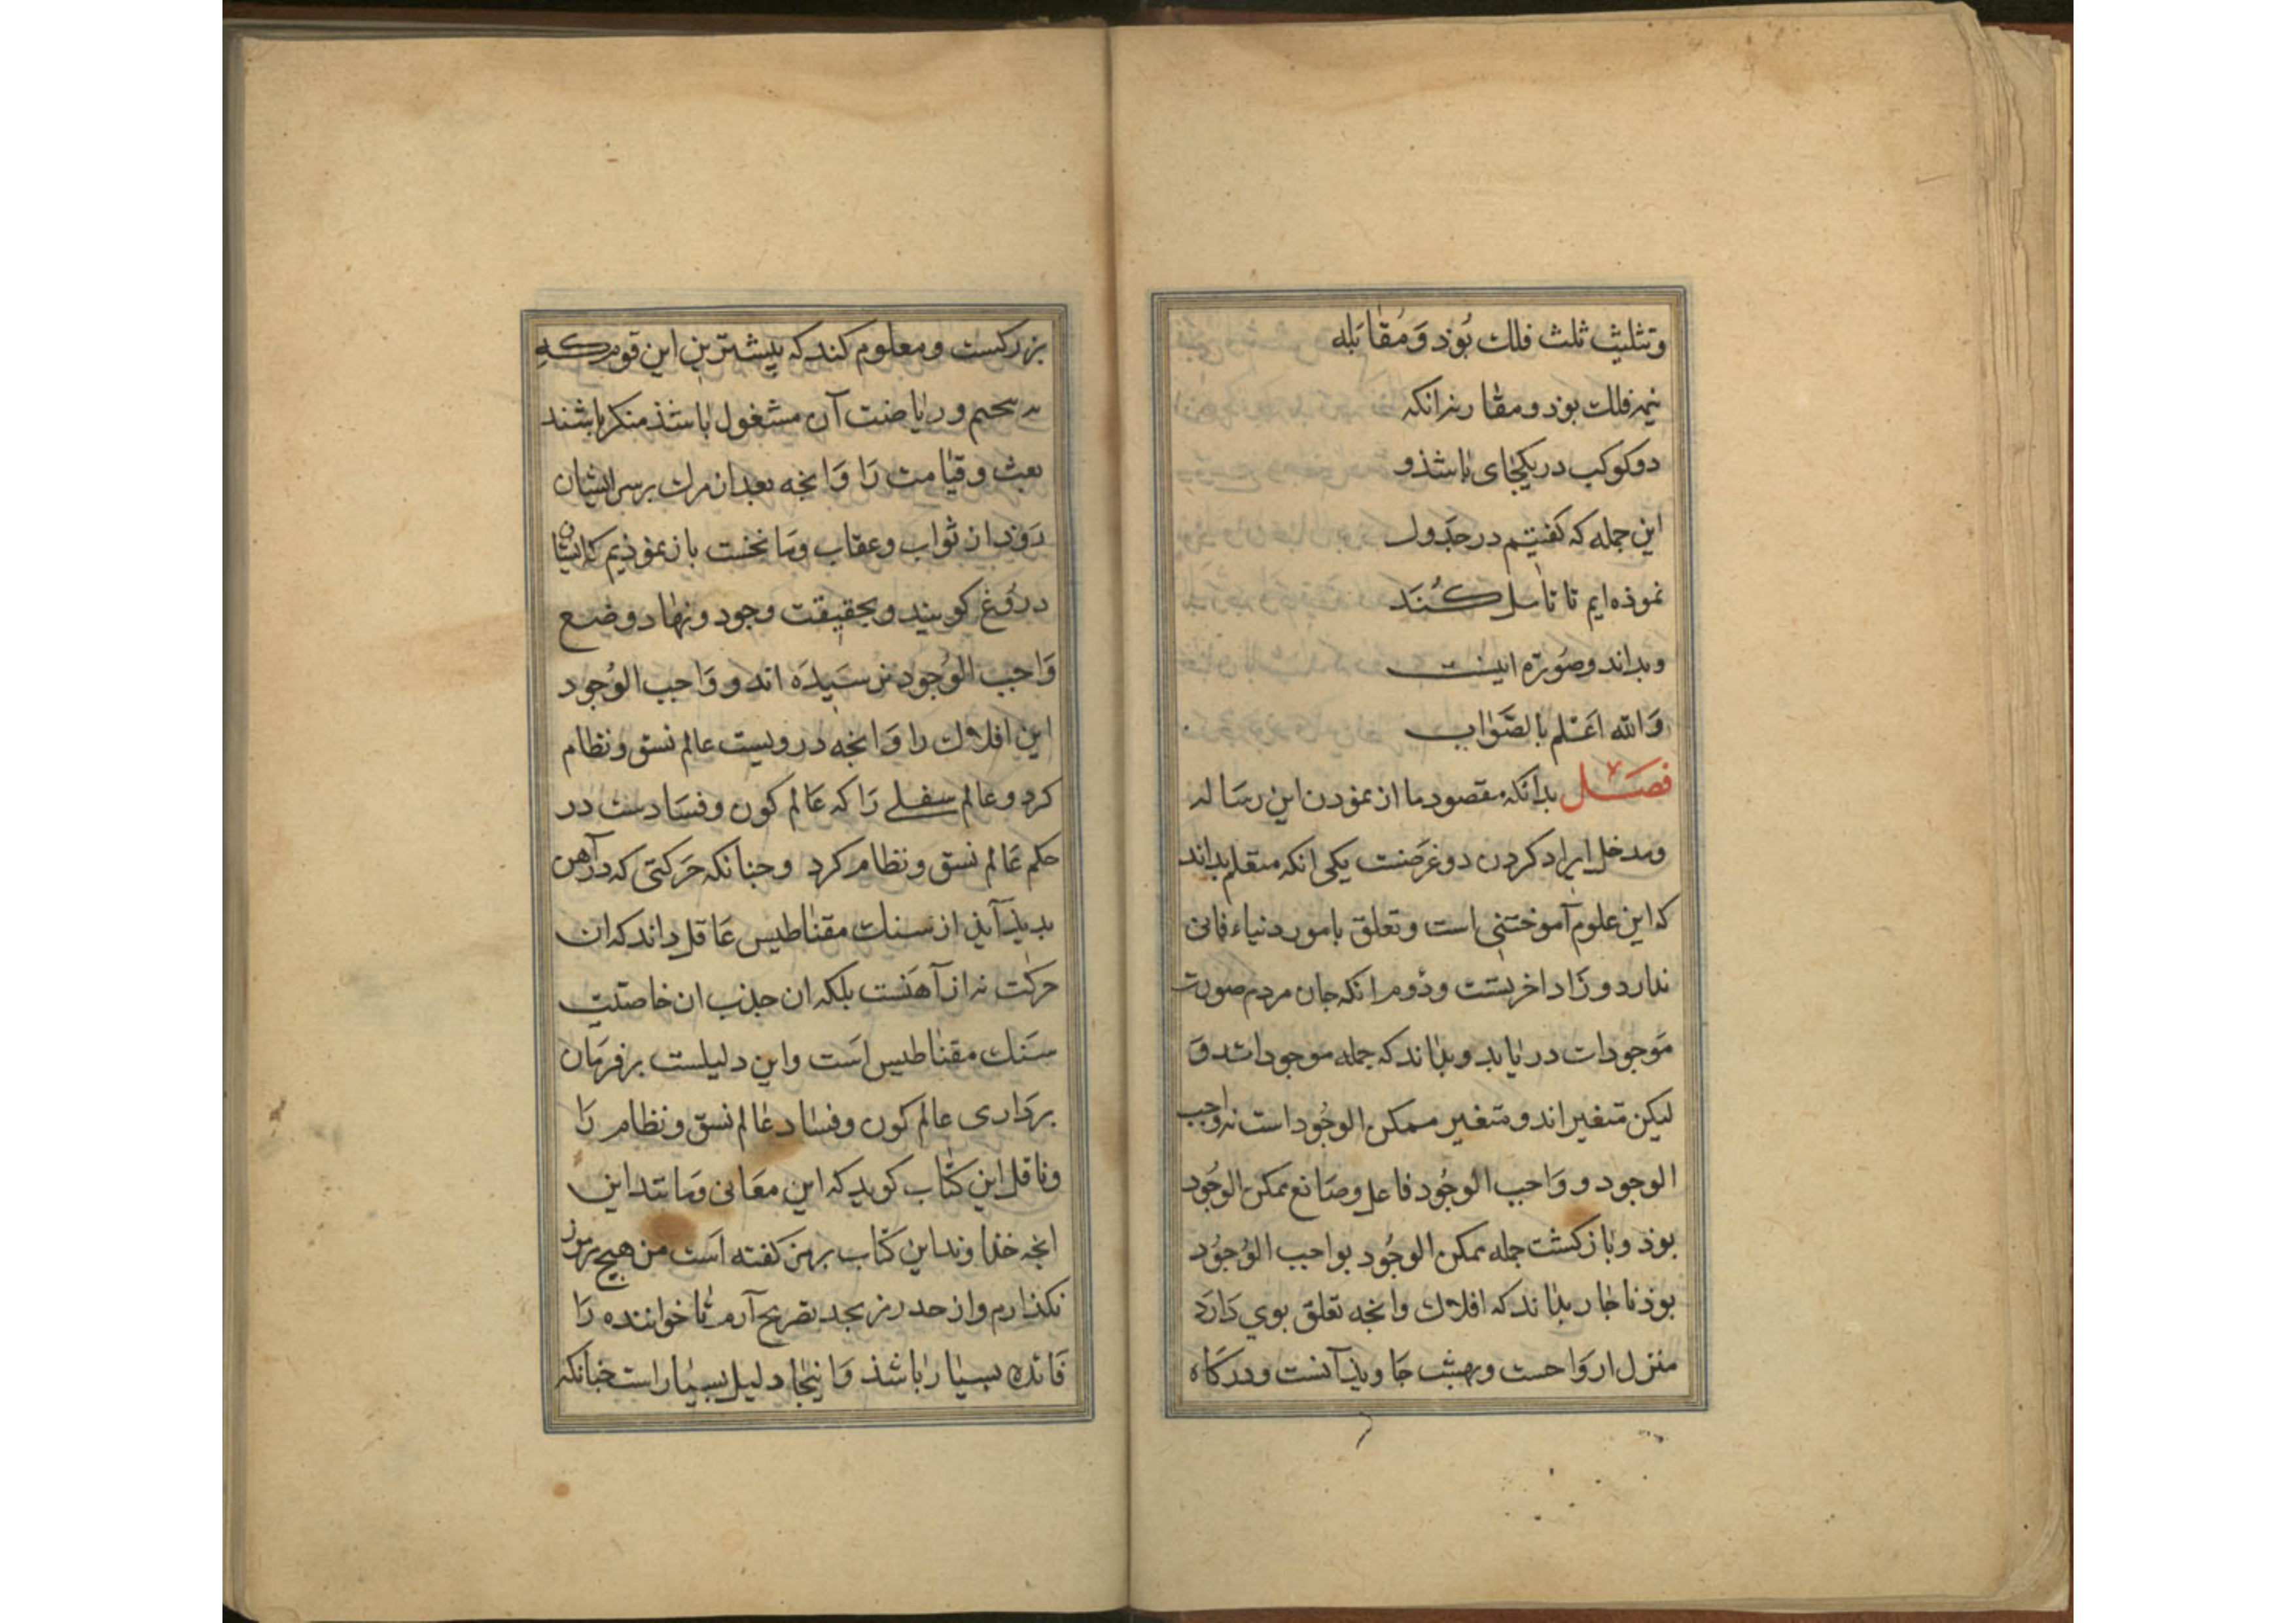 وتثلیث ثلث فلك بُوذ وَمُقابَله
نیمه فلك بوذ ومقارنه انکه
دوکوکب در یکجای باشذ و
این جمله که کفتیم در جَدول
نموذه ایم تا تامل کُنَند
وبداند وصُورَة اینست
وَالله اعَلم بالصَّوَاب
فصَل بدانکه مقصود ما از نمودن این رسَاله
ومدخل ایراد کردن دو غرَضنت یکی انکه متعلم بداند
که این علوم آموختنی است وتعلق بامور دنیاء فانی
ندارد و زَاد اخریتست ودُوم انکه جان مردم صورت
مَوجودات دریابد وبداند که جمله موجوداتند وَ
لیکن متغیراند ومتغیر ممکن الوجُود است نه واجب
الوجود و وَاجب الوجُود فاعل وصَانع ممکن الوجُود
بوذ وبازکشت جمله ممکن الوجُود بواجب الوُجوُد
بوذ ناجار بداند که افلاك وانجه تعلق بوی دَارَد
منزل اروَاحست وبهشت جَاویذ آنست ودرکَاه
بزرکست ومعلوم کند که بیشترین این قوم که
به تنجیم وریاضت آن مشغول باشذ منکر باشند
بعث وقیامت رَا وَانجه بعد از مرك برسر ایشان
رَوَذ از ثواب وعقاب وما نخست باز نموذیم که ایشان
درُوغ کویند وبحقیقت وجود ونهاد وضع
وَاجب الوُجود نرسَیدَه اند و وَاجب الوُجود
این افلاك را وَانجه درویست عالم نسق ونظام
کرد وعالم سفلے رَا که عَالم کون وفسَادست در
حکم عَالم نسق ونظام کرد وجنانکه حَرکتی که درآهن
بدیذ آیذ از سنك مقناطیس عَاقل داند که ان
حرکت نه از آهَنست بلکه ان جذب ان خاصّیت
سَنك مقناطیس اَست واین دلیلست برفرمَان
بردَاری عالم کون وفسَاد عَالم نسق ونظام رَا
وناقل این کتاب کوید که این معَانی ومانند این
انجه خذاوند این کتاب برمز کفته اَست من هیچ مرموز
نکذارم واز حد رمز بحد تصریح آرم تا خواننده رَا
فَائده بسیار باشذ وَاینجا دلیل بسیار است جنانکه